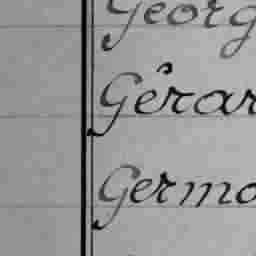 Georg
Gêrar
Germa